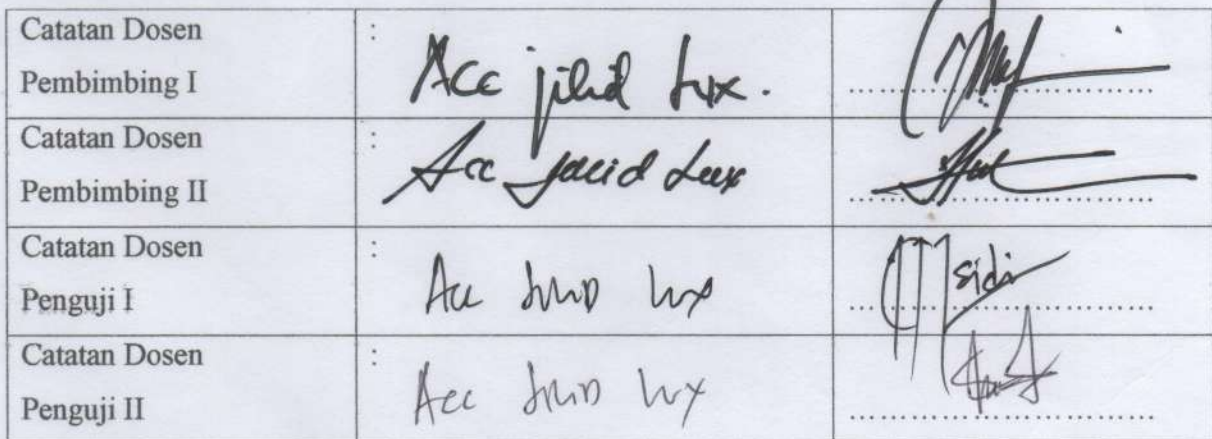 Catatan Dosen
Pembimbing I
: Acc jilid Lux.
Catatan Dosen
Pembimbing II
: Acc jilid Lux
Catatan Dosen
Penguji I
: Acc jilid lux
sidi
Catatan Dosen
Penguji II
: Acc jilid lux